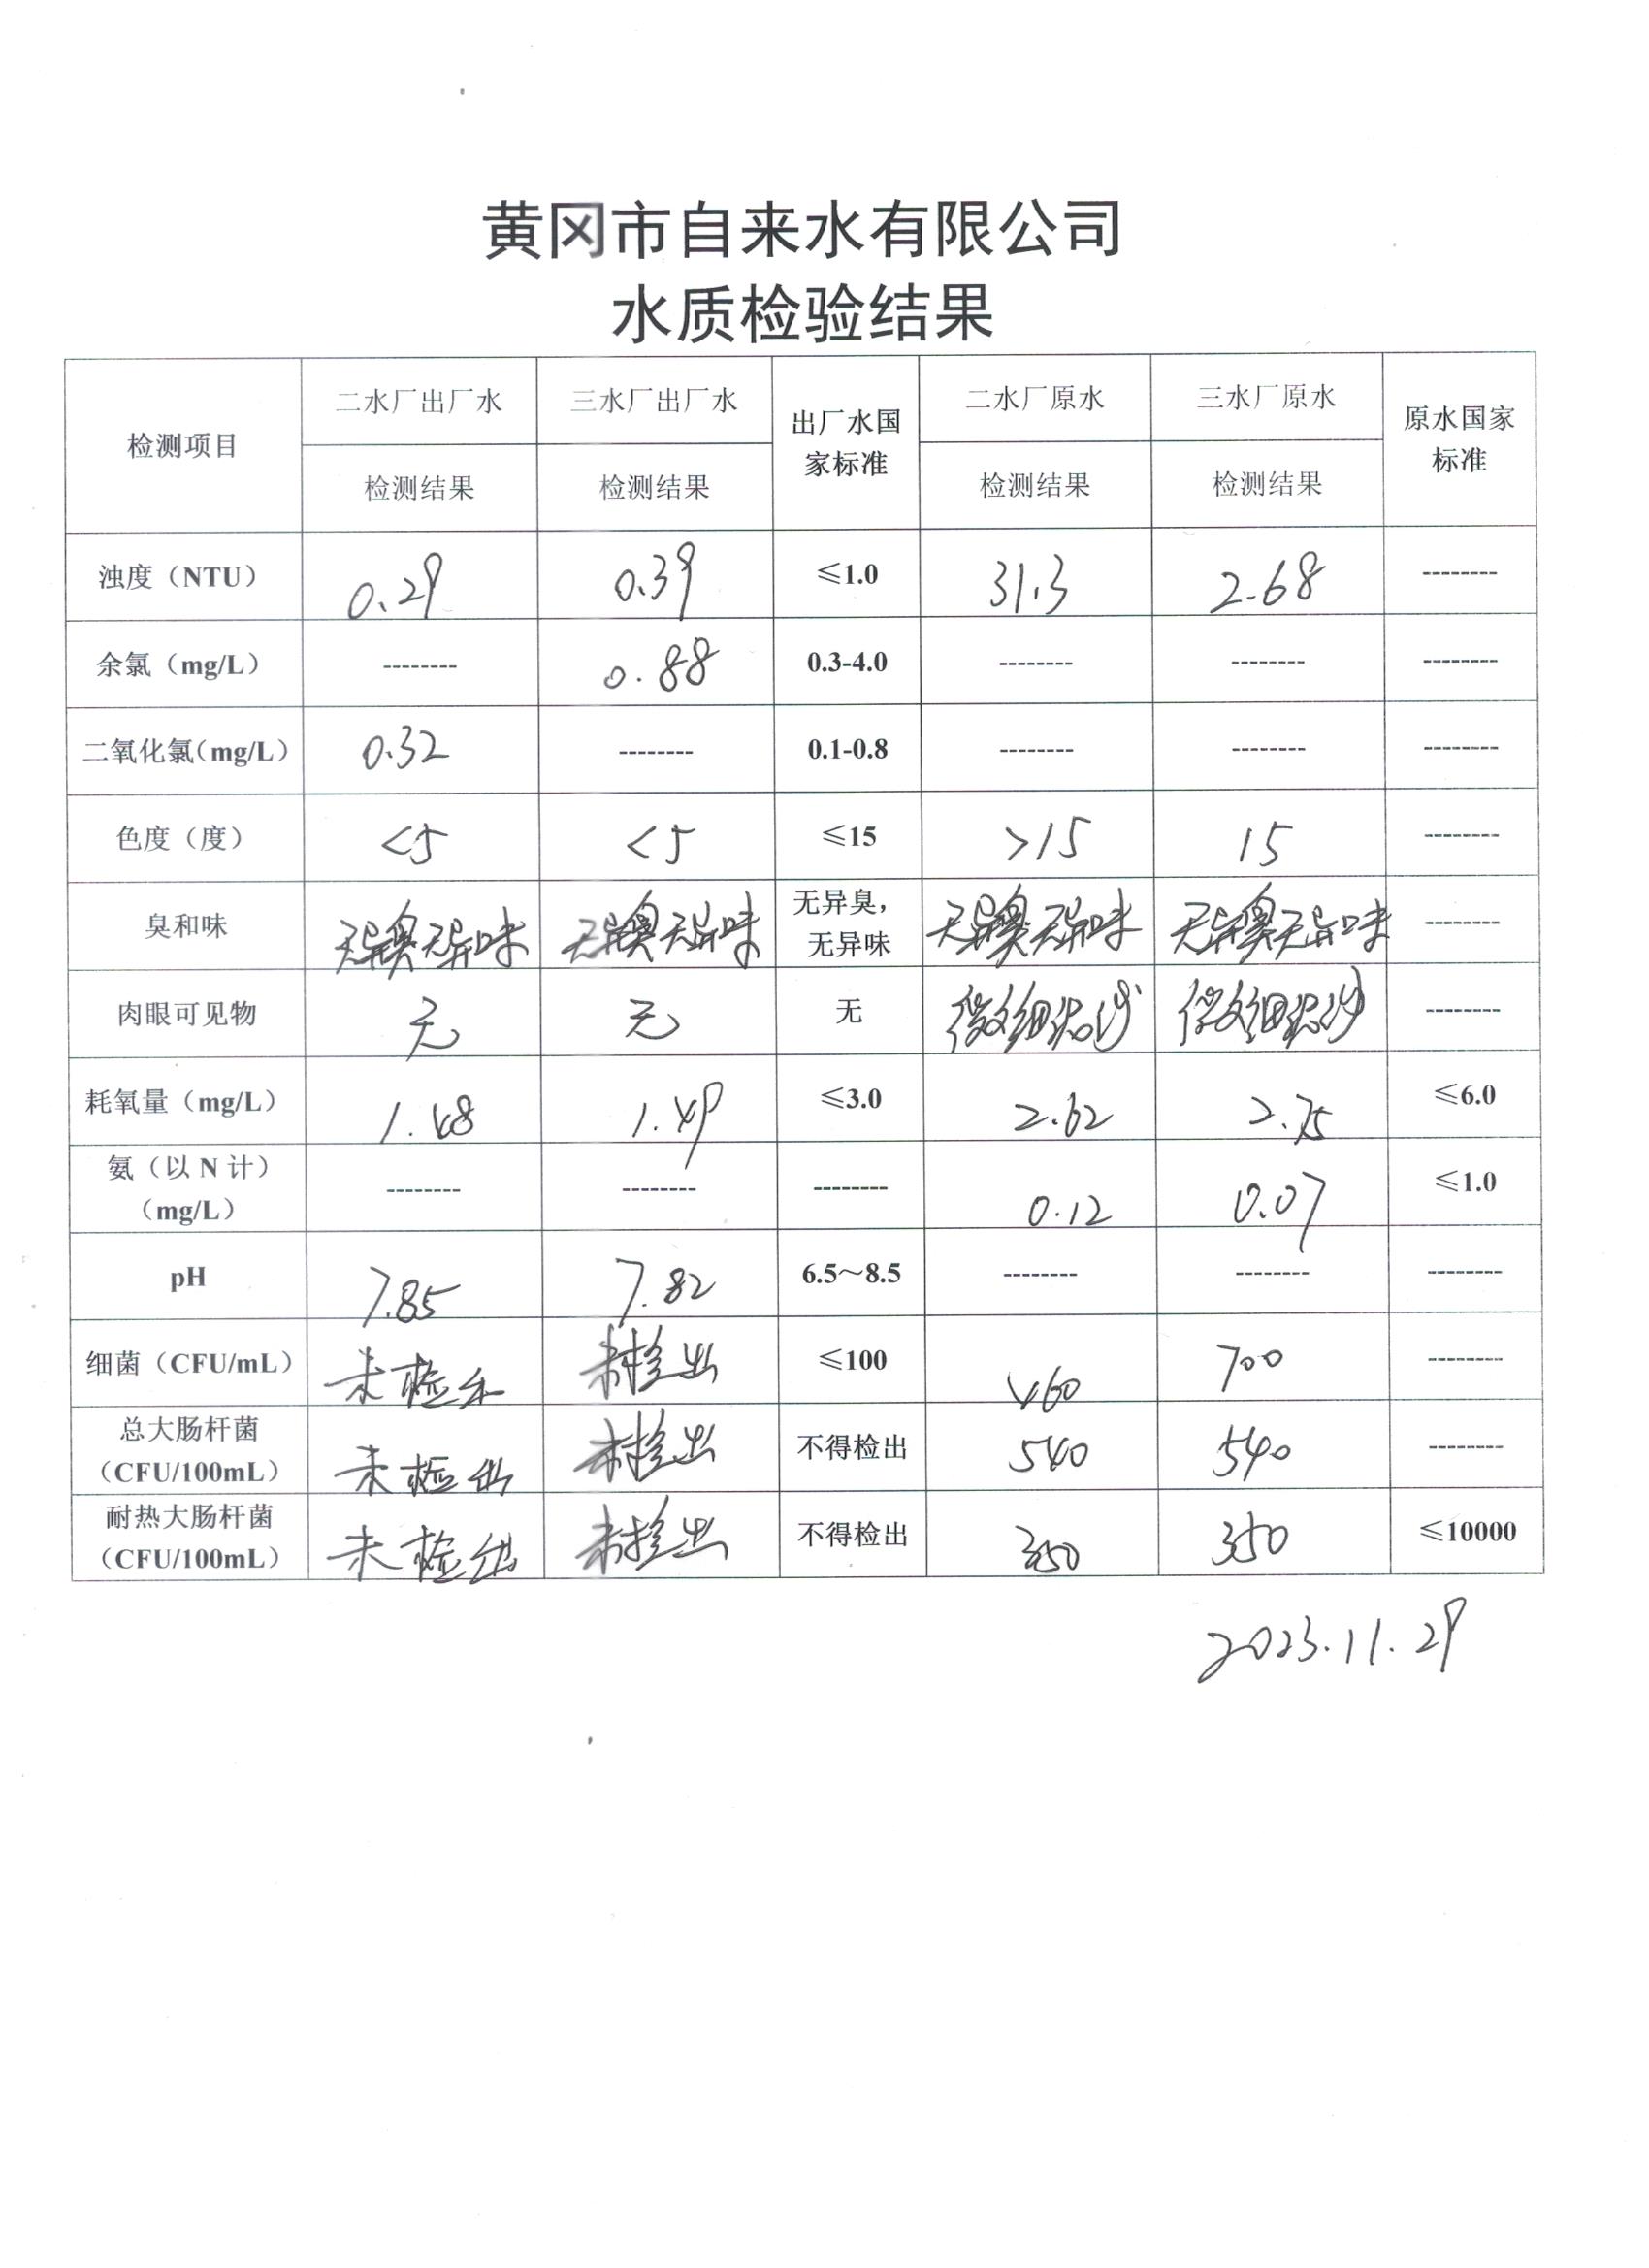 黄冈市自来水有限公司
水质检验结果
检测项目 二水厂出厂水 三水厂出厂水 出厂水国家标准 二水厂原水 三水厂原水 原水国家标准
检测结果 检测结果 检测结果 检测结果
浊度（NTU） 0.29 0.39 ≤1.0 31.3 2.68 --------
余氯（mg/L） -------- 0.88 0.3-4.0 -------- -------- --------
二氧化氯（mg/L） 0.32 -------- 0.1-0.8 -------- -------- --------
色度（度） <5 <5 ≤15 >15 15 --------
臭和味 无异臭无异味 无异臭无异味 无异臭，无异味 无异臭无异味 无异臭无异味 --------
肉眼可见物 无 无 无 微细泥沙 微细泥沙 --------
耗氧量（mg/L） 1.48 1.49 ≤3.0 2.62 2.75 ≤6.0
氨（以 N 计）（mg/L） -------- -------- -------- 0.12 0.07 ≤1.0
pH 7.85 7.82 6.5～8.5 -------- -------- --------
细菌（CFU/mL） 未检出 未检出 ≤100 460 700 --------
总大肠杆菌（CFU/100mL） 未检出 未检出 不得检出 540 540 --------
耐热大肠杆菌（CFU/100mL） 未检出 未检出 不得检出 350 350 ≤10000
2023.11.29